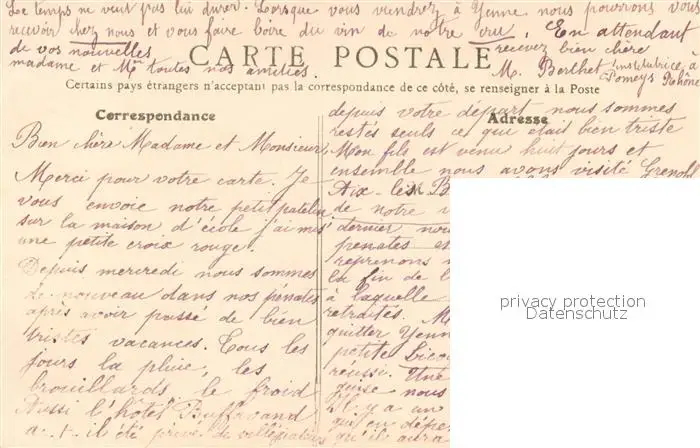 Le temps ne veut pas lui durer. Lorsque vous viendrez à Yenne nous pourrons vous
recevoir chez nous et vous faire boire du vin de notre cru. En attendant
de vos nouvelles recevez bien chère
madame et Mr toutes nos amitiés.
M. Berthet institutrice à
Pomeys Rhône
CARTE POSTALE
Certains pays étrangers n'acceptant pas la correspondance de ce côté, se renseigner à la Poste
Correspondance
Bien chère Madame et Monsieur,
Merci pour votre carte. Je
vous envoie notre petit patelin
sur la maison d'école j'ai mis
une petite croix rouge.
Depuis mercredi nous sommes
de nouveau dans nos pénates
après avoir passé de bien
tristes vacances. Tous les
jours la pluie, les
brouillards le froid
Aussi l'hôtel
a-t-il été privé de
Adresse
depuis votre départ nous sommes
restés seuls ce qui était bien triste
Mon fils est venu huit jours et
ensemble nous avons visité Grenobl
Aix-les-B
de notre
dernier nou
penates es
reprenons
la fin de l
à laquelle
retraités. M
quitter Yenn
petite
réussi. Une
nous
Il y a un
qui en
qu'il aura
privacy protection
Datenschutz